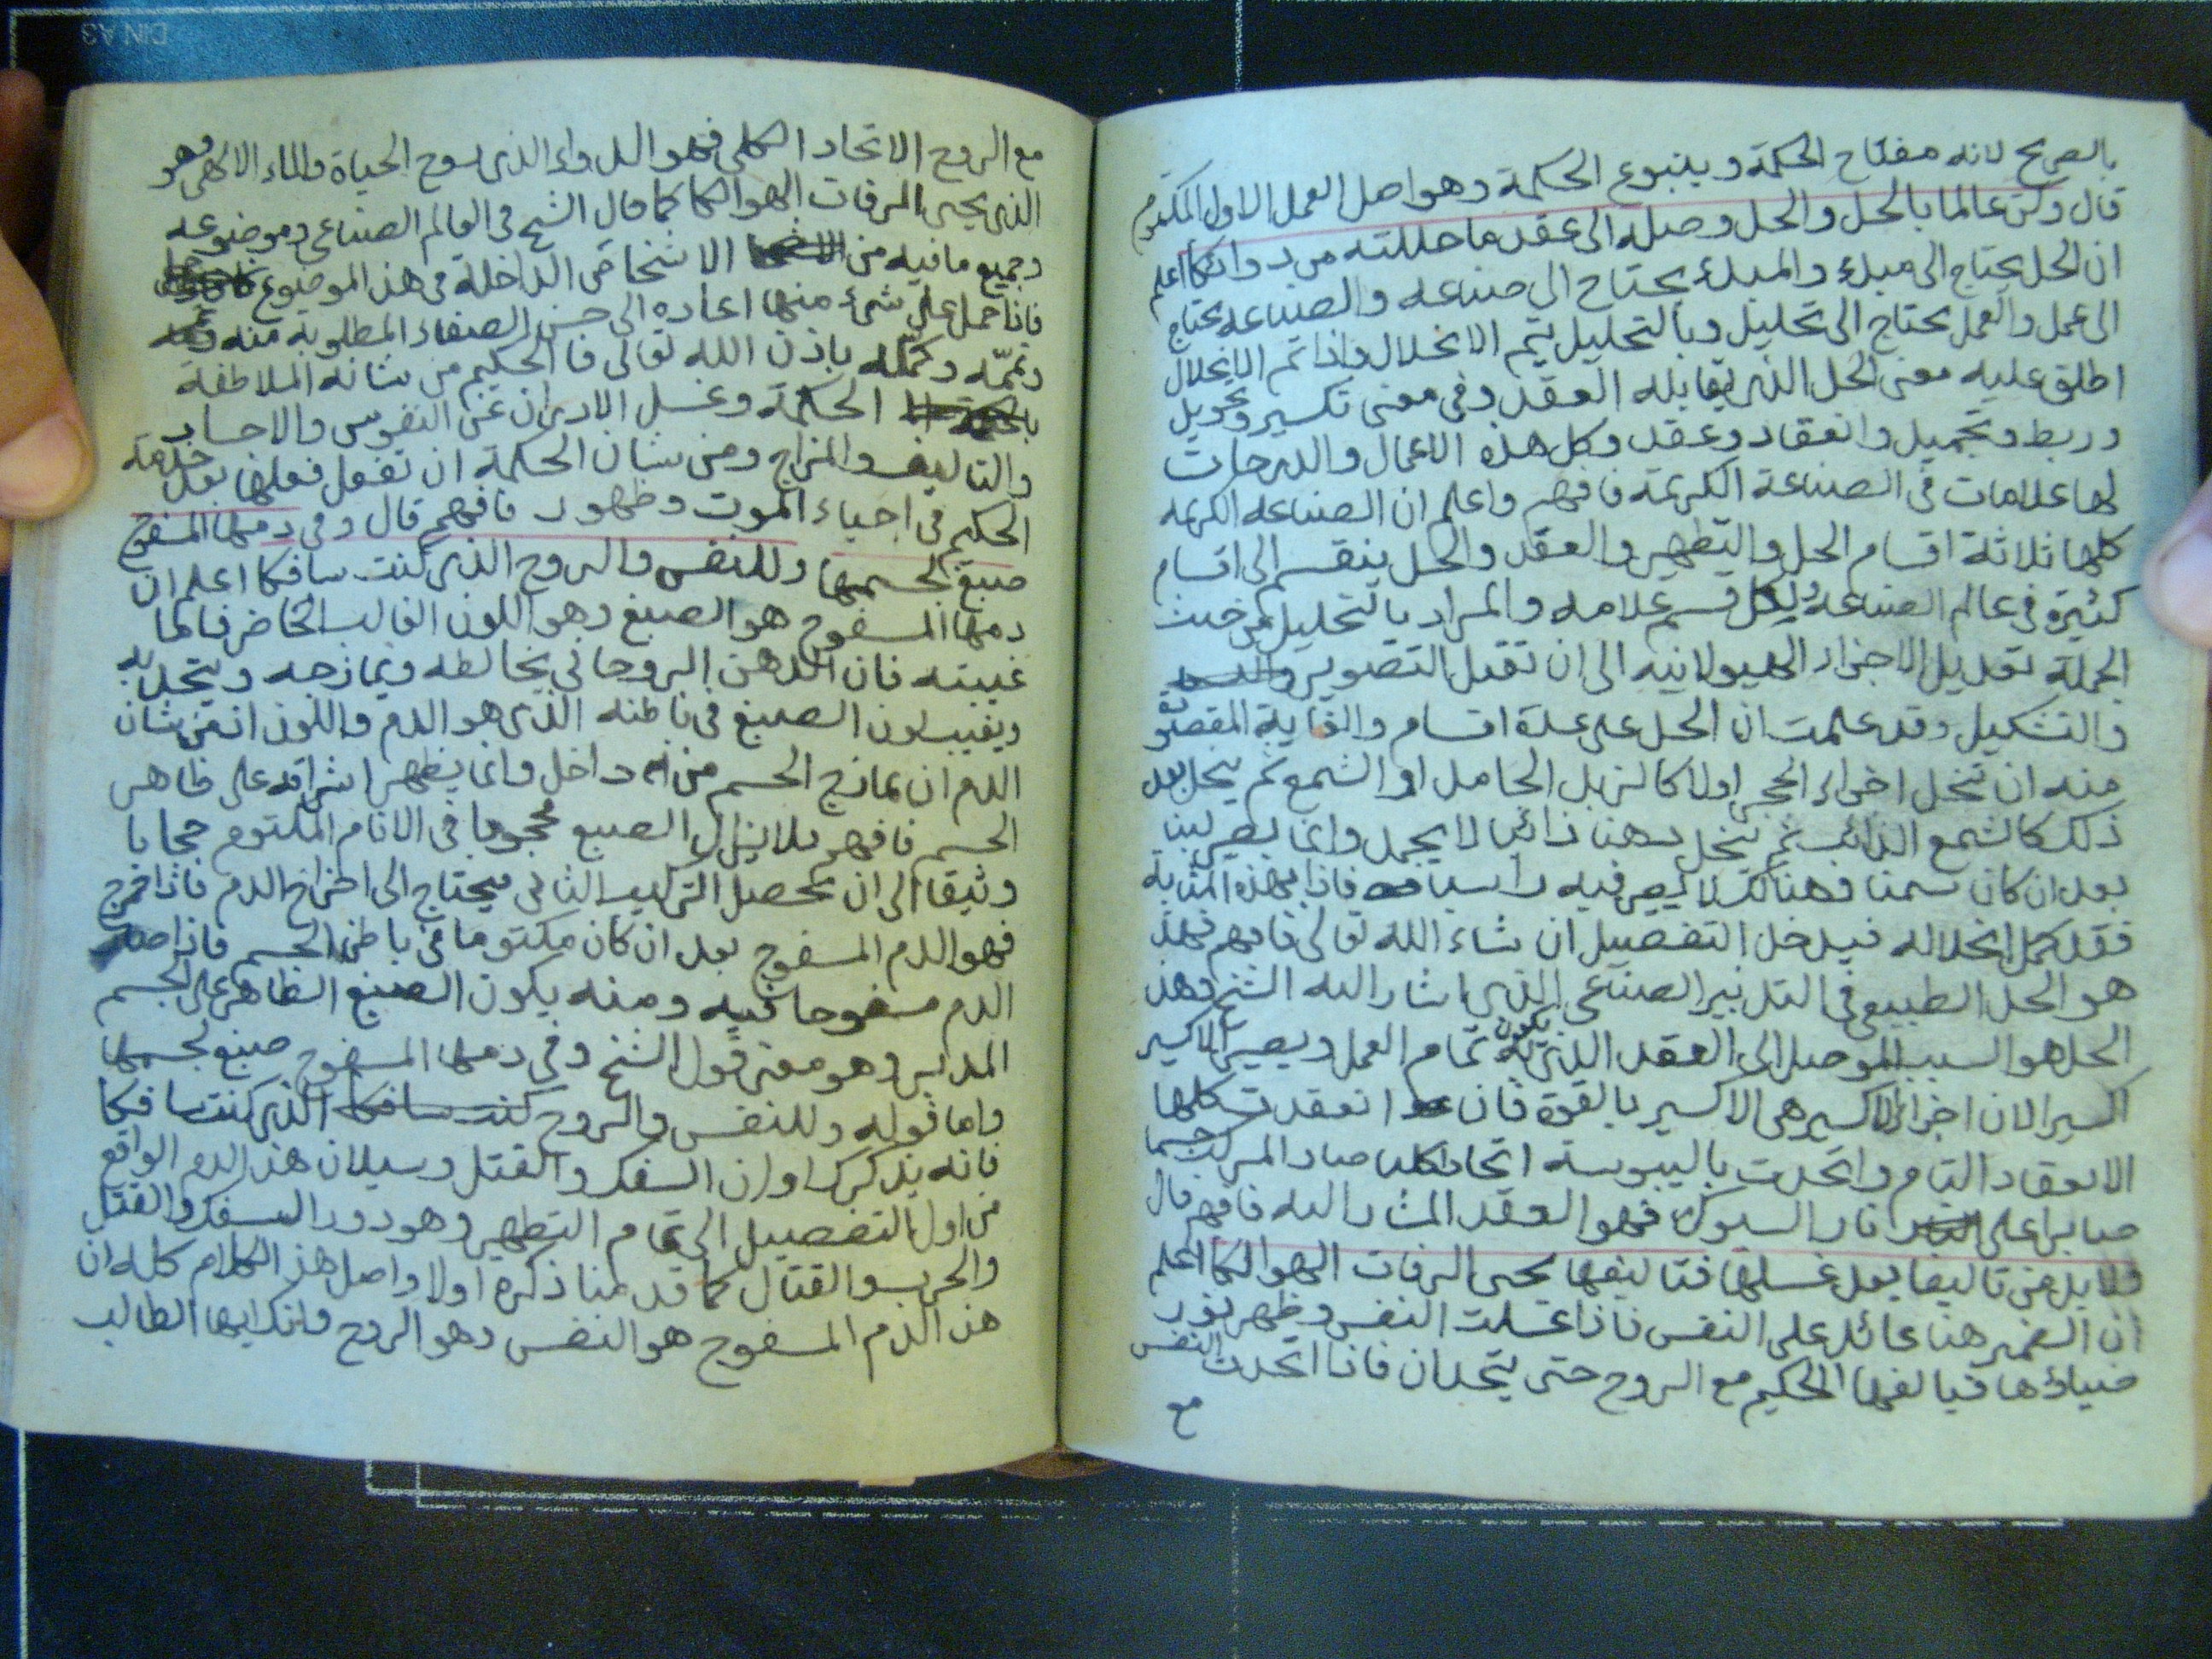 بالصريح لانه مفتاح الحكمة وينبوع الحكمة وهو اصل العمل الاول المكتوم
قال وكن عالما بالحل والحل وصله الى عقد ما حللته من دوائكا اعلم
ان الحل يحتاج الى مبدء والمبدء يحتاج الى صناعه والصناعه تحتاج
الى عمل والعمل يحتاج الى تحليل وبالتحليل يتم الانحلال واذا تم الانحلال
اطلق عليه معنى الحل الذي يقابله العقد وفي معنى تكسير وتحويل
وربط وتجميل وانعقاد وعقد وكل هذه الاعمال والدرجات
لها علامات في الصناعة الكريمة فافهم واعلم ان الصناعه الكريمه
كلها ثلاثة اقسام الحل والتطهير والعقد والحل ينقسم الى اقسام
كثيرة في عالم الصناعه ولكل قسم علامه والمراد بالتحليل من حيث
الجملة تعديل الاجزاء الهيولانيه الى ان تقبل التصوير
والتشكيل وقد علمت ان الحل على عدة اقسام والغاية المقصودة
منه ان تنحل اجزاء الحجر اولا كالزبل الجامد او الشمع ثم ينحل بعد
ذلك كالشمع الذائب ثم تنحل دهنا ذائبا لا يجمد وانما يصير لبنا
بعد ان كان سمنا وهنالك لا يصير فيه راسبا فاذا بهذه المثابه
فقد كمل انحلاله فيدخل التفصيل ان شاء الله تعالى فافهم فهذا
هو الحل الطبيعي في التدبير الصناعي الذي اشار اليه الشيخ وهذا
الحل هو السبب الموصل الى العقد الذي يكون به تمام العمل ويصير الاكسير
اكسيرا لان اجزاء الاكسير هي الاكسير بالقوة فان انعقدت كلها
الانعقاد التام واتحدت باليبوسة اتحادا كليا صار المركب جسما
صابرا على نار السبوك فهو العقد المشار اليه فافهم قال
فلا بد من تاليفا بعد غسلها فتاليفها يحيى الرفات الهوالكا اعلم
ان الضمير هنا عائد على النفس فاذا غسلت النفس وظهر نور
ضياؤها فيالفها الحكيم مع الروح حتى يتحدان فاذا اتحدت النفس
مع
مع الروح الاتحاد الكلي فهو الدواء الذي بروح الحياة والماء الالهي وهو
الذي يحيى الرفات الهوالكا كما قال الشيخ في العالم الصناعي وموضوعه
وجميع ما فيه من الاشخاص الداخلة في هذا الموضوع
فاذا حمل على شئ منها اعاده الى حسن الصفاء المطلوبه منه
وتممه وكمله باذن الله تعالى فالحكيم من شانه الملاطفة
الحكمة وغسل الادران عن النفوس والاجساد
والتاليف والمزاج ومن شان الحكمة ان تفعل فعلها بعد خدمة
الحكيم في احياء الموت وظهور فافهم قال وفي دمها المسفوح
صبغ لجسمها وللنفس والروح الذي كنت سافكا اعلم ان
دمها المسفوح هو الصبغ وهو اللون الغائب الحاضر فاما
غيبته فان الدهن الروحاني يخالطه ويمازجه ويتحد به
ويغيب لون الصبغ في باطنه الذي هو الدم واللون اذ من شان
الدم ان يمازج الجسم من داخل وانما يظهر اشراقه على ظاهر
الجسم فافهم فلا يزال الصبغ محجوبا في الانام المكتوم حجابا
وثيقا الى ان تحصل التركيب الثاني فيحتاج الى اخراج الدم فاذا خرج
فهو الدم المسفوح بعد ان كان مكتوما في باطن الجسم فاذا صار
الدم مسفوحا فيه ومنه يكون الصبغ الظاهر على الجسم
المدبر وهو معنى قول الشيخ وفي دمها المسفوح صبغ لجسمها
واما قوله وللنفس والروح كنت سافكا الذي كنت سافكا
فانه يذكرك اوان السفك والقتل وسيلان هذا الدم الواقع
من اول التفصيل الى تمام التطهير وهو دور السفك والقتل
والحرب والقتال كما قدمنا ذكره اولا واصل هذا الكلام كله ان
هذا الدم المسفوح هو النفس وهو الروح وانك ايها الطالب